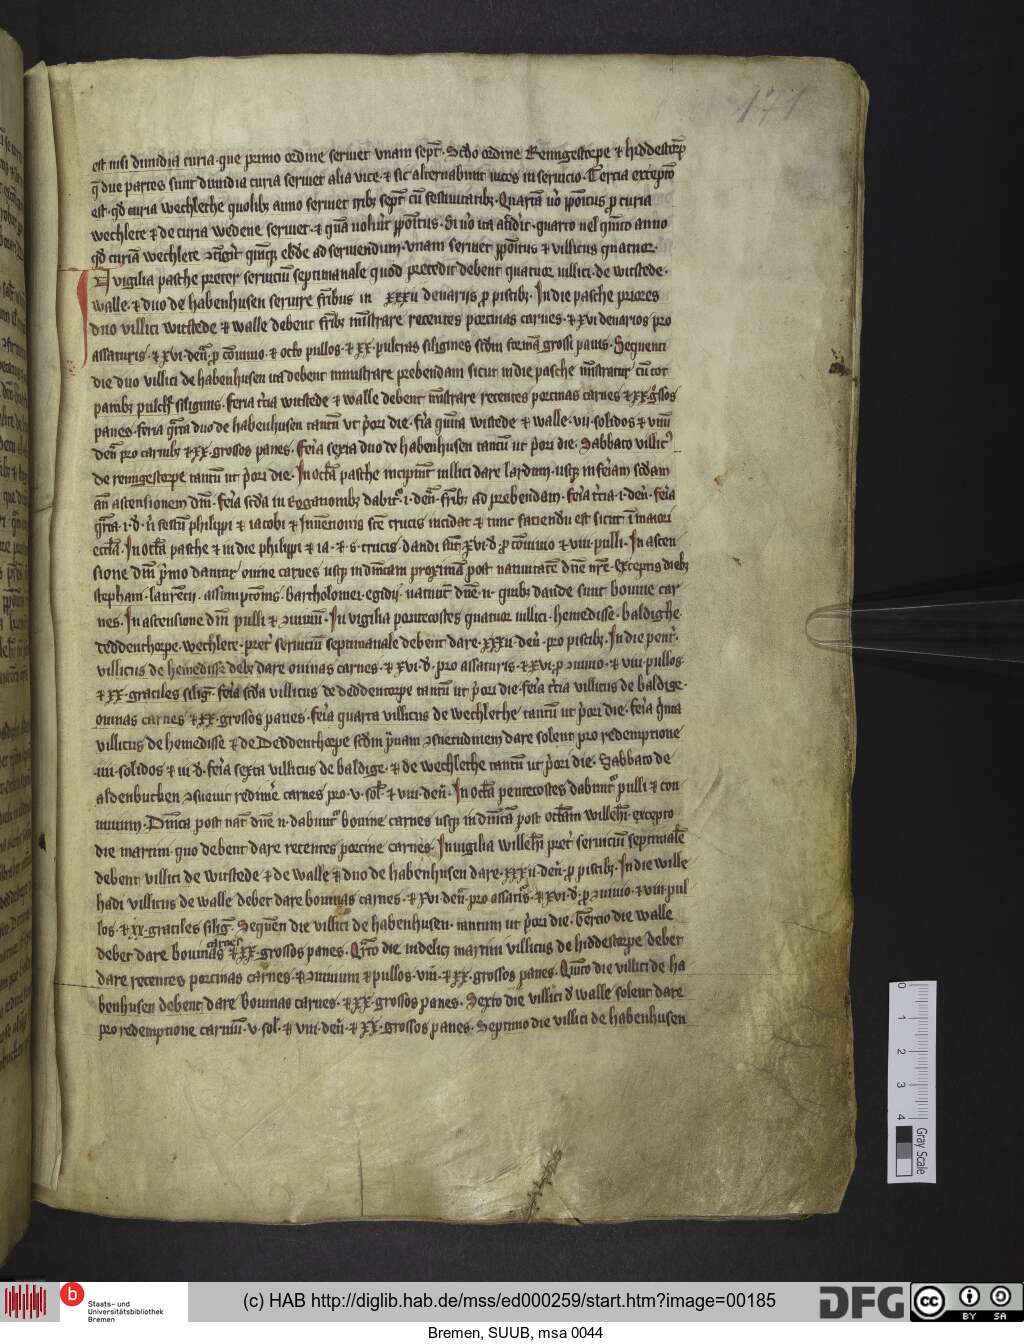 171
est nisi dimidia curia. que primo ordine seruiet vnam sept̄. Scd̄o ordine Reningestorpe ⁊ hiddestorp̄
q̄ due partes sunt dimidia curia seruiet alia vice. ⁊ sic alternabunt uices in seruicio. Tercia excepto
est. qd̄ curia wechlethe quolibꝫ anno seruiet tribꝫ sept̄ cū festiuitatibꝫ. Quartā ū̄o ꝓpoītus ꝓ curia
wechlete ⁊ de curia wedene seruiet. ⁊ quā uoluīt ꝓpoītus. Si ū̄o ita
qd̄ curiā wechlete ebd̄e ad seruiendum. vnam seruiet ꝓpoītus ⁊ villicus quatuor.
In vigilia pasche preter seruiciū septimanale quod precedit debent quatuor uillici. de witstede.
walle. ⁊ duo de habenhusen seruire fr̄ibus in xxxii denarijs ꝓ piscibꝫ. In die pasche priores
duo villici witstede ⁊ walle debent fr̄ibꝫ mīstrare recentes porcinas carnes. ⁊ xvi denarios pro
assaturis. ⁊ xvi. den̄. ꝓ cōuiuio. ⁊ octo pullos. ⁊ xx. pulcras siligines scd̄m formam grossi panis. Sequenti
die duo villici de habenhusen ita debent ministrare prebendam sicut in die pasche mīstratur cū tot
panibꝫ pulcīs siliginis. feria t̄cia witstede ⁊ walle debent mīstrare recentes porcinas carnes ⁊ xx. g̊ssos
panes. feria q̄rta duo de habenhusen tantū ut p̄ori die. fīa quīta witstede ⁊ walle. vii. solidos ⁊ viii
den̄ pro carnibꝫ ⁊ xx. grossos panes. feria sexta duo de habenhusen tantū ut p̄ori die. Sabbato villicꝰ
de reningestorpe tantū ut p̄ori die. In oct̄a pasche incipiūt uillici dare lardum. usqꝫ in feriam scd̄am
an̄ ascensionem dn̄i. feria scd̄a in Rogationibꝫ dabit̃. i. den̄. fr̄ibꝫ ad prebendam. feria t̄cia. i. den̄. feria
q̄rta. i. đ. nisi festū philippi ⁊ iacobi ⁊ Inuētionis sc̄e crucis incidat ⁊ tunc faciendū est sicut ī maiori
eccl̄a. In oct̄a pasche ⁊ in die philippi ⁊ ia. ⁊ s. crucis. dandi sūt xvi. đ ꝓ cōuiuio ⁊ viii. pulli. In ascen
sione dn̄i p̄mo dantur ouine carnes usqꝫ in dn̄icam proximā post natiuitatē dn̄e nr̄e. exceptis diebꝫ
stephani. laurētii. assumptōnis. bartholomei. egidij. natiuīt dn̄e n̄. quibꝫ dande sunt bouine car
nes. In ascensione dn̄i pulli ⁊ ꝯuiuiū. In vigilia pentecostes quatuor uillici. hemedisse. baldighe.
deddenthorpe. wechlete. pret̄ seruiciū septimanale debent dare. xxxii. den̄. pro piscibꝫ. In die pent̄.
villicus de hemedisse debꝫ dare ouinas carnes. ⁊ xvi. đ. pro assaturis. ⁊ xvi. ꝓ ꝯuiuio. ⁊ viii. pullos.
⁊ xx. graciles siliḡ. feria scd̄a villicus de deddentorpe tantū ut p̄ori die. feria t̄cia villicus de baldige.
ouinas carnes ⁊ xx. grossos panes. feria quarta villicus de wechlethe tantū ut p̄ori die. feria q̄inta
villicus de hemedisse ⁊ de Deddenthorpe scd̄m p̄uam ꝯsuetudinem dare solent pro redemptione
.iiii. solidos ⁊ iii. đ. feria sexta villicus de baldige. ⁊ de wechlethe tantū ut p̄ori die. Sabbato de
aldenbucken ꝯsueuit redimē carnes pro. v. sol̄. ⁊ viii. den̄. In oct̄a pentecostes dabunt̃ pulli ⁊ con
uiuium. Dn̄ica post nat̄ dn̄e n̄. dabunt̃ bouine carnes usqꝫ in dn̄icā post oct̄am willeh̄i. excepto
die martini. quo debent dare recentes porcine carnes. In uigilia willeh̄i pret̄ seruiciū septimāle
debent villici de witstede ⁊ de walle ⁊ duo de habenhusen dare. xxxii. den̄. ꝓ piscibꝫ. In die wille
hadi villicus de walle debet dare bouinas carnes. ⁊ xvi den̄. pro assatīs. ⁊ xvi. đ. ꝓ ꝯuiuio. ⁊ viii. pul
los. ⁊ xx. graciles siliḡ. Sequēti die villici de habenhusen. tantum ut p̄ori die. Tercio die walle
debet dare bouinas carnes ⁊ xx. grossos panes. Qr̄to die uidelicꝫ martini villicus de hiddestorpe debet
dare recentes porcinas carnes. ⁊ ꝯuiuium ⁊ pullos. viii. ⁊ xx. grossos panes. Quīto die villici de ha
benhusen debent dare bouinas carnes. ⁊ xx. grossos panes. Sexto die villici đ walle solent dare
pro redemptione carniū. v. sol̄. ⁊ viii. den̄. ⁊ xx. grossos panes. Septimo die villici de habenhusen
0 1 2 3 4
Gray Scale
b
Staats- und
Universitätsbibliothek
Bremen
(c) HAB http://diglib.hab.de/mss/ed000259/start.htm?image=00185
DFG
cc BY SA
Bremen, SUUB, msa 0044